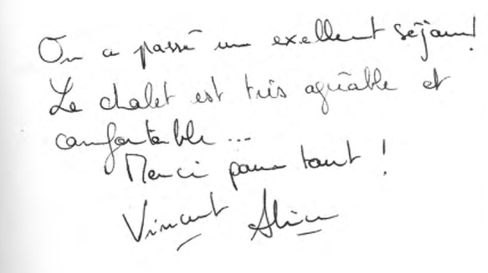 On a passé un exellent séjour!
Le chalet est très agréable et
confortable...
Merci pour tout !
Vincent Aline